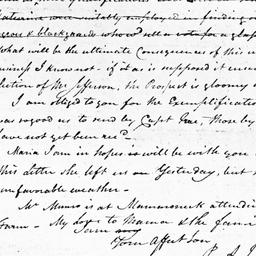 were suitably employed in finding
& blackguards who would sell a vote for a glass
What will be the ultimate Consequences of this
I know not - if it as is supposed it
lection of Mr Jefferson, the Prospect is gloomy
I am obliged to you for the Exemplificatio
was so good as to send by Capt those by
have not yet been recd.
Maria I am in hopes is will be with you
this Letter she left us on Yesterday, but
unfavorable weather -
Mr Munro is at Mamaroneck attendin
Farm - My love to Mama & the fami
I am
Your Affect Son
P. A. J